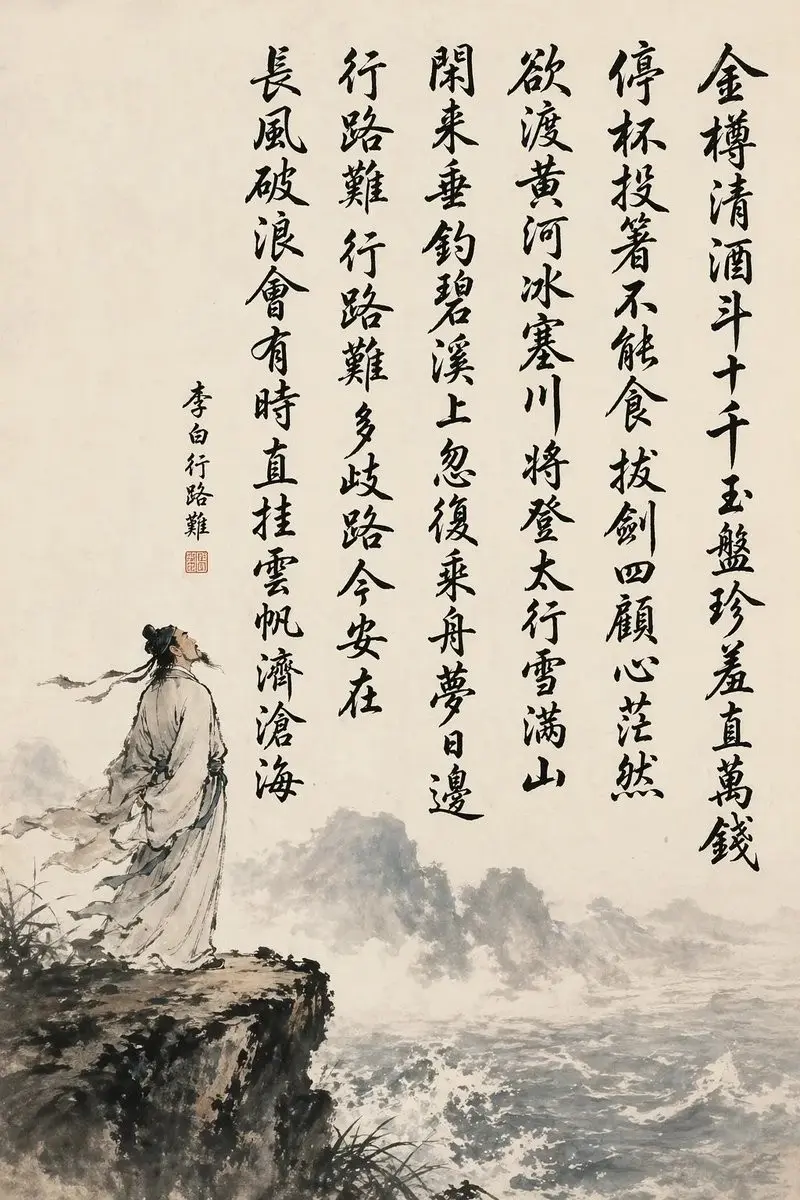 金樽清酒斗十千玉盤珍羞直萬錢
停杯投箸不能食拔劍四顧心茫然
欲渡黄河冰塞川將登太行雪滿山
閑来垂釣碧溪上忽復乘舟夢日邊
行路難行路難多歧路今安在
長風破浪會有時直挂雲帆濟滄海
李白行路難